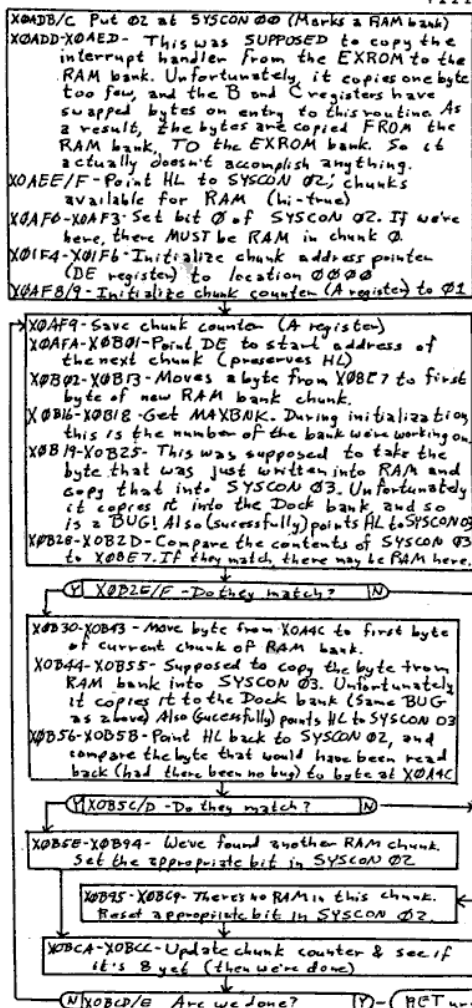 X0ADB/C Put 02 at SYSCON 00 (Marks a RAM bank)
X0ADD-X0AED- This was SUPPOSED to copy the
interrupt handler from the EXROM to the
RAM bank. Unfortunately, it copies one byte
too few, and the B and C registers have
swapped bytes on entry to this routine. As
a result, the bytes are copied FROM the
RAM bank, TO the EXROM bank. So it
actually doesn't accomplish anything.
X0AEE/F-Point HL to SYSCON 02, chunks
available for RAM (hi-true)
X0AF0-X0AF3-Set bit 0 of SYSCON 02. If we're
here, there MUST be RAM in chunk 0.
X01F4-X01F6-Initialize chunk address pointer
(DE register) to location 0000
X0AF8/9-Initialize chunk counter (A register) to 01
X0AF9-Save chunk counter (A register)
X0AFA-X0B01-Point DE to start address of
the next chunk (preserves HL)
X0B02-X0B13-Moves a byte from X0BE7 to first
byte of new RAM bank chunk.
X0B16-X0B18-Get MAXBNK. During initialization,
this is the number of the bank we're working on.
X0B19-X0B25-This was supposed to take the
byte that was just written into RAM and
copy that into SYSCON 03. Unfortunately
it copies it into the Dock bank, and so
is a BUG! Also (sucessfully) points HL to SYSCON 03
X0B28-X0B2D-Compare the contents of SYSCON 03
to X0BE7. If they match, there may be RAM here.
Y X0B2E/F -Do they match? N
X0B30-X0B43-Move byte from X0A4C to first byte
of current chunk of RAM bank.
X0B44-X0B55-Supposed to copy the byte from
RAM bank into SYSCON 03. Unfortunately
it copies it to the Dock bank (Same BUG
as above) Also (sucessfully) points HL to SYSCON 03
X0B56-X0B5B-Point HL back to SYSCON 02, and
compare the byte that would have been read
back (had there been no bug) to byte at X0A4C
Y X0B5C/D -Do they match? N
X0B5E-X0B94-We've found another RAM chunk.
Set the appropriate bit in SYSCON 02
X0B95-X0BC9-There's no RAM in this chunk.
Reset appropriate bit in SYSCON 02.
X0BCA-X0BCC-Update chunk counter & see if
it's 8 yet (then we're done)
N X0BCD/E Are we done? Y RETurn